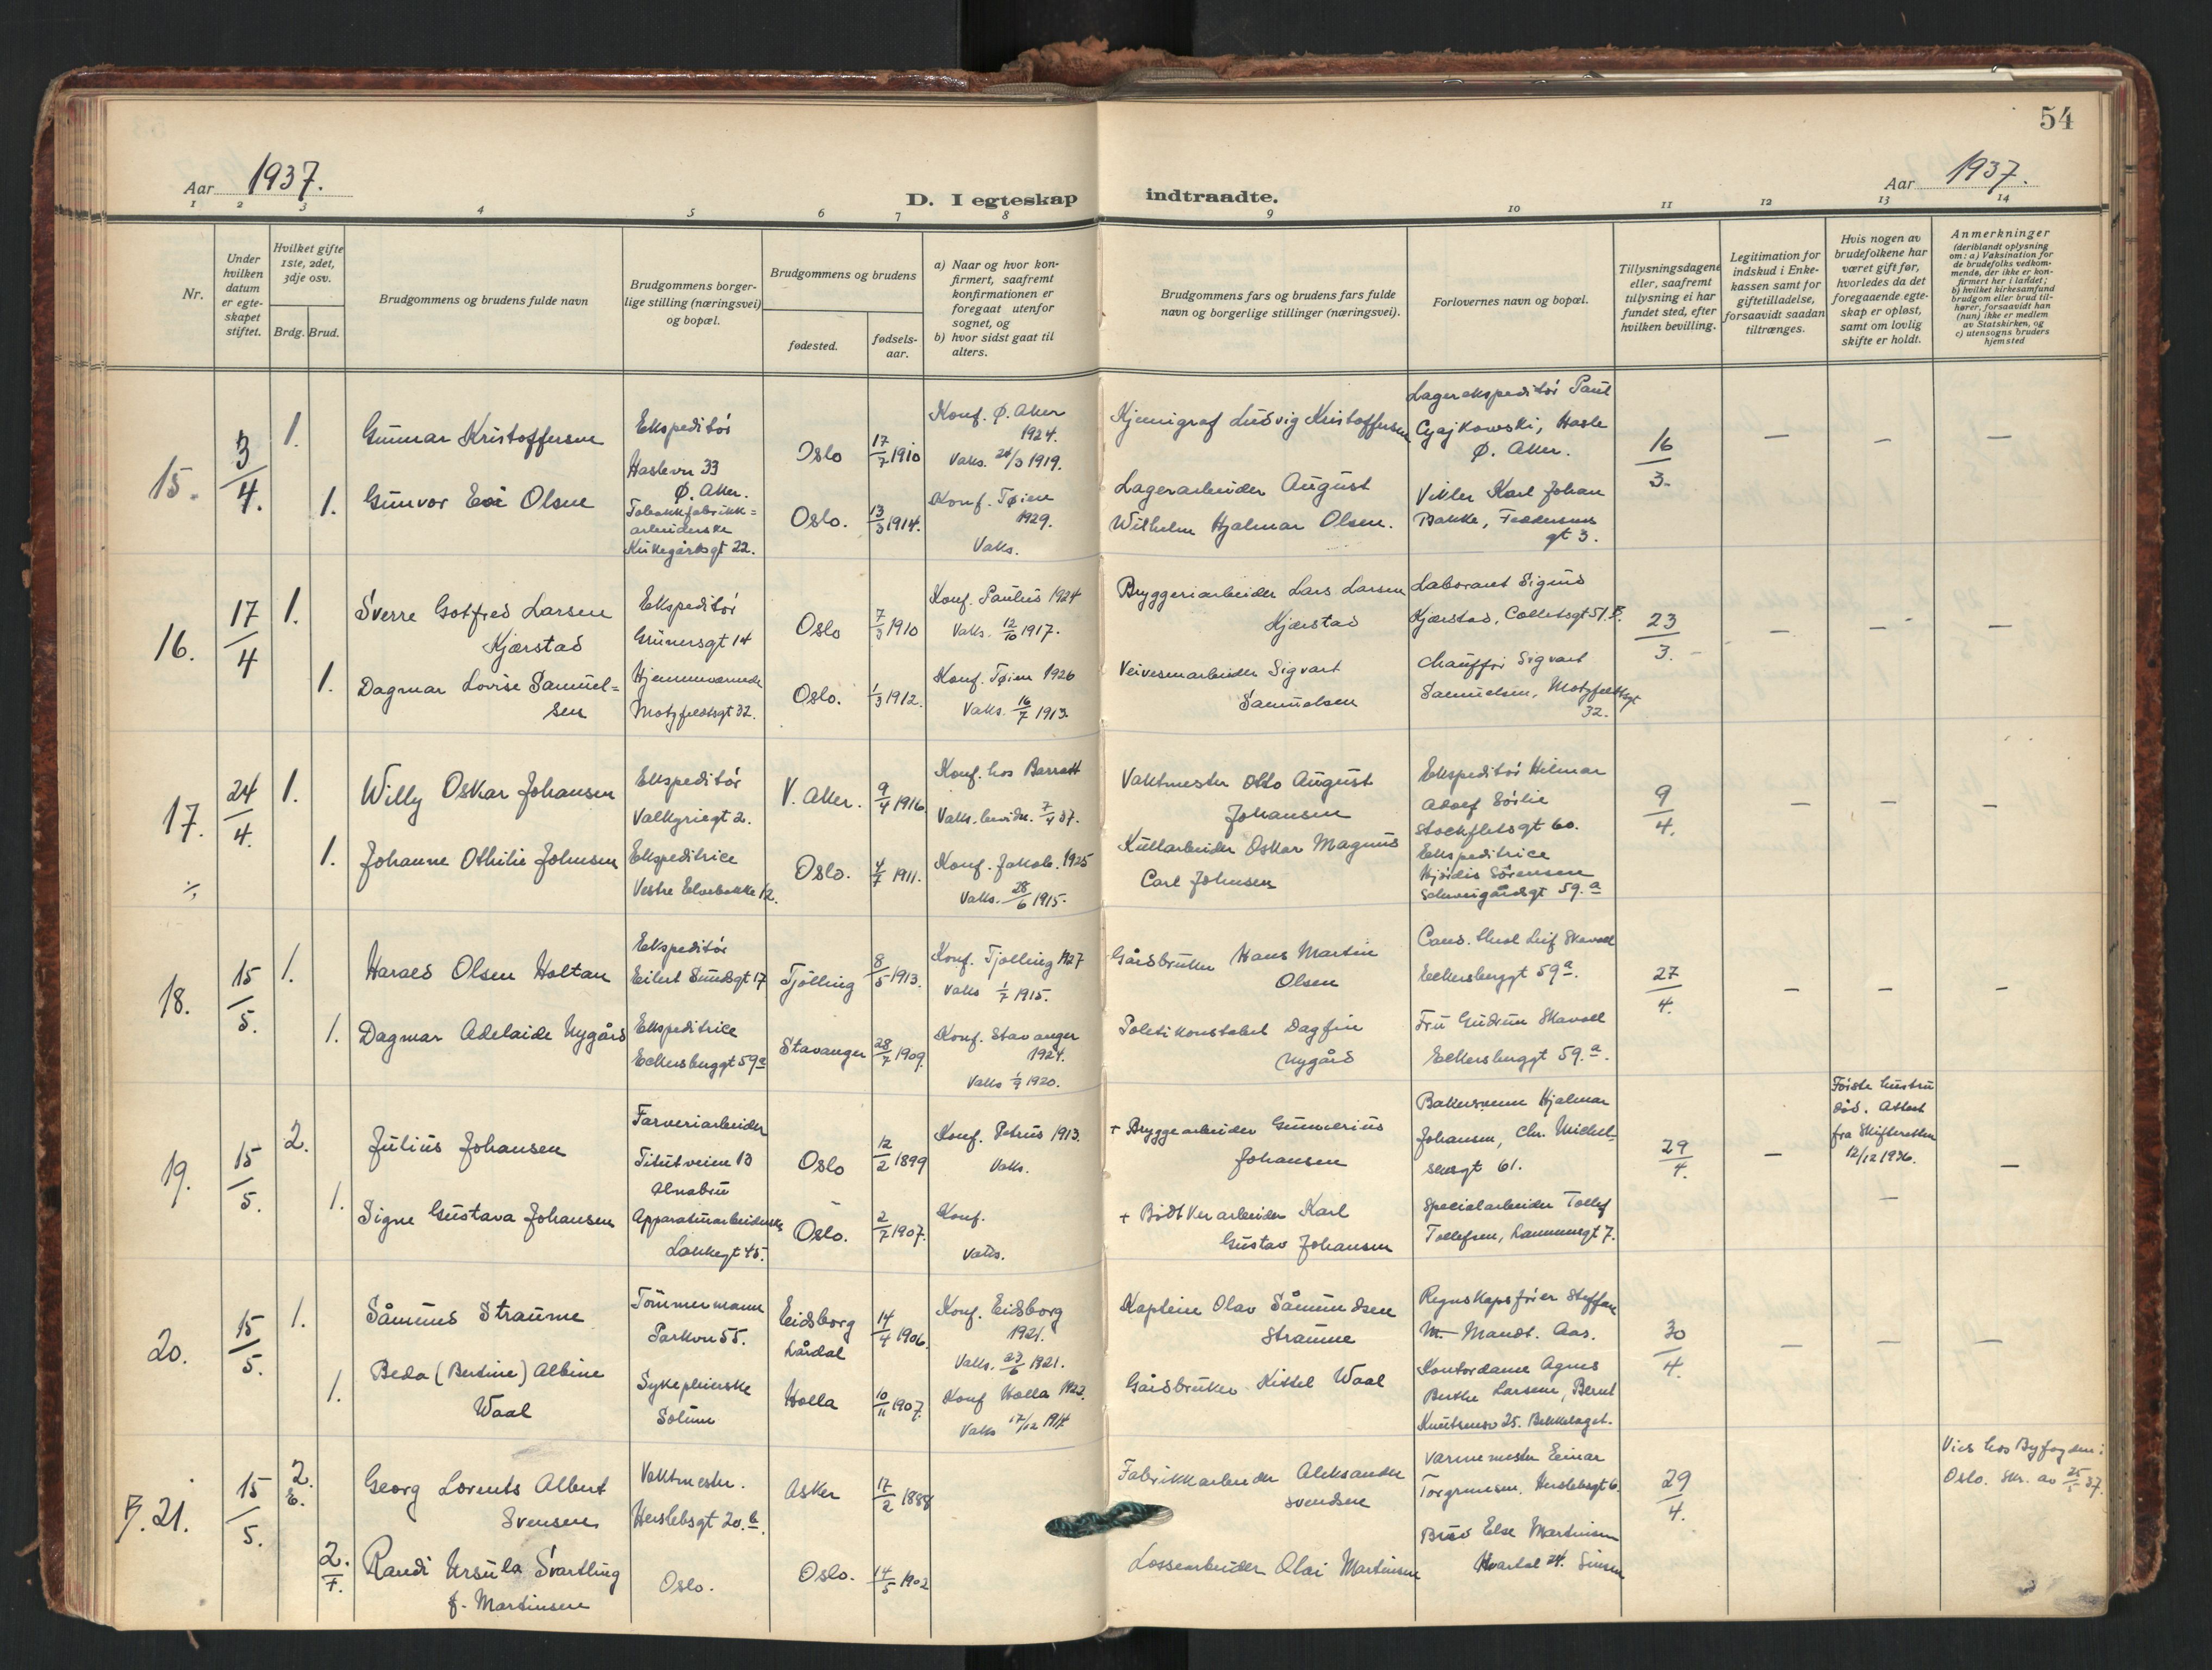 54
Aar 1937.
D. I egteskap indtraadte.
Aar 1937.
1 2 3 4 5 6 7 8 9 10 11 12 13 14
Nr.
Under hvilken datum er egte-skapet stiftet.
Hvilket gifte 1ste, 2det, 3dje osv.
Brdg. Brud.
Brudgommens og brudens fulde navn
Brudgommens borger-lige stilling (næringsvei) og bopæl.
Brudgommens og brudens
fødested.
fødsels-aar.
a) Naar og hvor kon-firmert, saafremt konfirmationen er foregaat utenfor sognet, og
b) hvor sidst gaat til alters.
Brudgommens fars og brudens fars fulde navn og borgerlige stillinger (næringsvei).
Forlovernes navn og bopæl.
Tillysningsdagene eller, saafremt tillysning ei har fundet sted, efter hvilken bevilling.
Legitimation for indskud i Enke-kassen samt for giftetilladelse, forsaavidt saadan tiltrænges.
Hvis nogen av brudefolkene har været gift før, hvorledes da det foregaaende egte-skap er opløst, samt om lovlig skifte er holdt.
Anmerkninger
(deriblandt oplysning om: a) Vaksination for de brudefolks vedkom-mende, der ikke er kon-firmert her i landet; b) hvilket kirkesamfund brudgom eller brud til-hører, forsaavidt han (hun) ikke er medlem av Statskirken, og c) utensogns bruders hjemsted
15. 3/4. 1. Gunnar Kristoffersen
Ekspeditør
Haslevn 33
Ø. Aker.
Oslo 17/7 1910
Konf. Ø. Aker
1924.
Vaks. 24/3 1919.
Kjemigraf Ludvig Kristoffersen
Lagerekspeditør Paul
Cyajkowski, Hasle
Ø. Aker.
16/3. — — —
1. Gunvor Eva Olsen
Tobakkfabrikk=
arbeiderske
Kirkegårdsgt 22.
Oslo. 13/3 1914.
Konf. Tøien
1929.
Vaks.
Lagerarbeider August
Wilhelm Hjalmar Olsen.
Vikler Karl Johan
Bakke, Feddersens
gt 3.
16. 17/4 1. Sverre Gotfred Larsen
Kjærstad
Ekspeditør
Grünersgt 14
Oslo 7/3 1910
Konf. Paulus 1924
Vaks. 12/10 1917.
Bryggeriarbeider Lars Larsen
Kjærstad
Laborant Sigurd
Kjærstad, Colletsgt 51.B.
23/3. — — —
1. Dagmar Lovise Samuel=
sen
Hjemmeværende
Motzfeldtsgt 32.
Oslo. 1/3 1912.
Konf. Tøien 1926
Vaks. 16/7 1913.
Veivesenarbeider Sigvart
Samuelsen
Chauffør Sigvart
Samuelsen, Motzfeldtsgt
32.
17. 24/4. 1. Willy Oskar Johansen
Ekspeditør
Valkyriegt 2.
V. Aker. 9/4 1916
Konf. hos Barratt
Vaks. bevidn. 7/4 37.
Vaktmester Otto August
Johansen
Ekspeditør Hilmar
Adolf Sørlie
Stockfletsgt 60.
9/4. — — —
1. Johanne Othilie Johnsen
Ekspeditrice
Vestre Elvebakke 12.
Oslo. 4/7 1911.
Konf. Jakob. 1925
Vaks. 28/6 1915.
Kullarbeider Oskar Magnus
Carl Johnsen
Ekspeditrice
Hjørdis Sørensen
Schweigårdsgt 59.a
18. 15/5. 1. Harald Olsen Holtan
Ekspeditør
Eilert Sundsgt 17
Tjølling 8/5 1913.
Konf. Tjølling 1927
Vaks 1/7 1915.
Gårdbruker Hans Martin
Olsen
Cand. Leif Skavoll
Eckersberggt 59a.
27/4. — — —
1. Dagmar Adelaide Nygård
Ekspeditrice
Eckersberggt 59a
Stavanger 28/7 1909.
Konf. Stavanger
1924.
Vaks 1/9 1920.
Politikonstabel Dagfin
Nygård
Fru Gudrun Skavoll
Eckersberggt 59.a.
19. 15/5. 2. Julius Johansen
Farveriarbeider
Titutveien 13
Alnabru
Oslo 12/2 1899
Konf. Petrus 1913.
Vaks.
+ Bryggearbeider Gunnerius
Johansen
Bakersvenn Hjalmar
Johansen, Chr. Michel=
sensgt 61.
29/4. —
Første hustru
død. Attest
fra Skifteretten
12/12 1936.
—
1. Signe Gustava Johansen
Apparaturarbeiderske
Lakkegt 45.
Oslo. 2/7 1907.
Konf.
Vaks.
+ Bødtkerarbeider Karl
Gustav Johansen
Spesialarbeider Tollef
Tollefsen, Lammersgt 7.
—
20. 15/5. 1. Såmund Straume
Tømmermann
Parkvn 55.
Eidsborg
Lårdal
14/4 1906.
Konf. Eidsborg
1921.
Vaks. 23/6 1921.
Kaptein Olav Såmundsen
Straume
Regnskapsfører Steffan
M. Mandt. Aas.
30/4. — — —
1. Beda (Bertine) Albine
Waal
Sykepleierske
Solum
Holla 10/11 1907.
Konf Holla 1922.
Vaks 17/12 1914
Gårdbruker Kittel Waal
Kontordame Agnes
Berthe Larsen, Bernt
Knutsensv 25. Bekkelaget.
B. 21. 15/5. 2. E. Georg Lorents Albert
Svensen
Vaktmester.
Herslebsgt 20.b.
Asker 17/2 1888
Fabrikkarbeider Aleksander
Svendsen
Varmemester Einar
Torgrimsen. Herslebsgt 6.
29/4.
Vies hos Byfogden i
Oslo. Skr. av 25/5 37.
2./F. Randi Ursula Svartling
f. Martinsen
Oslo.
Oslo. 14/5 1902
Lossearbeider Olai Martinsen
Else Martinsen
Kvartal 24. Sinsen